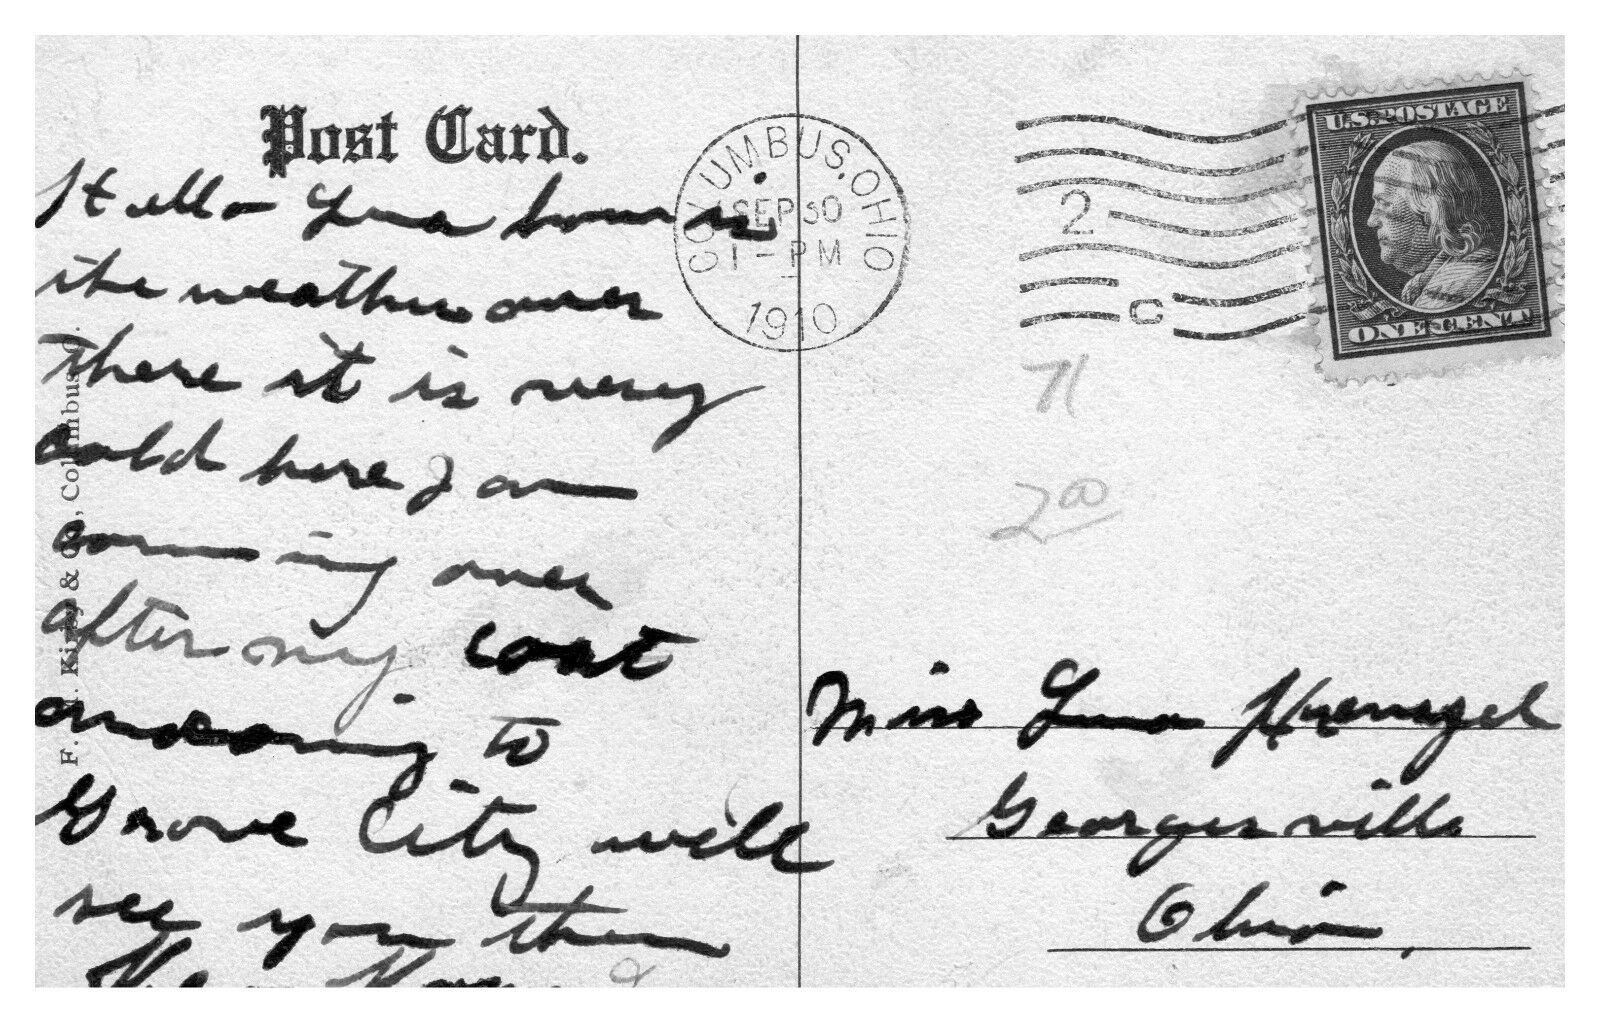 Post Card.
COLUMBUS, OHIO
SEP 30
1 - PM
1910
2
C
U.S. POSTAGE
ONE CENT
71
2 00
Hello Lena how is
the weather over
there it is very
cold here I am
coming over
after my coat
and going to
Grove City will
see you then
F. H. & Co., Columbus, O.
Miss Lena
Georgesville
Ohio,